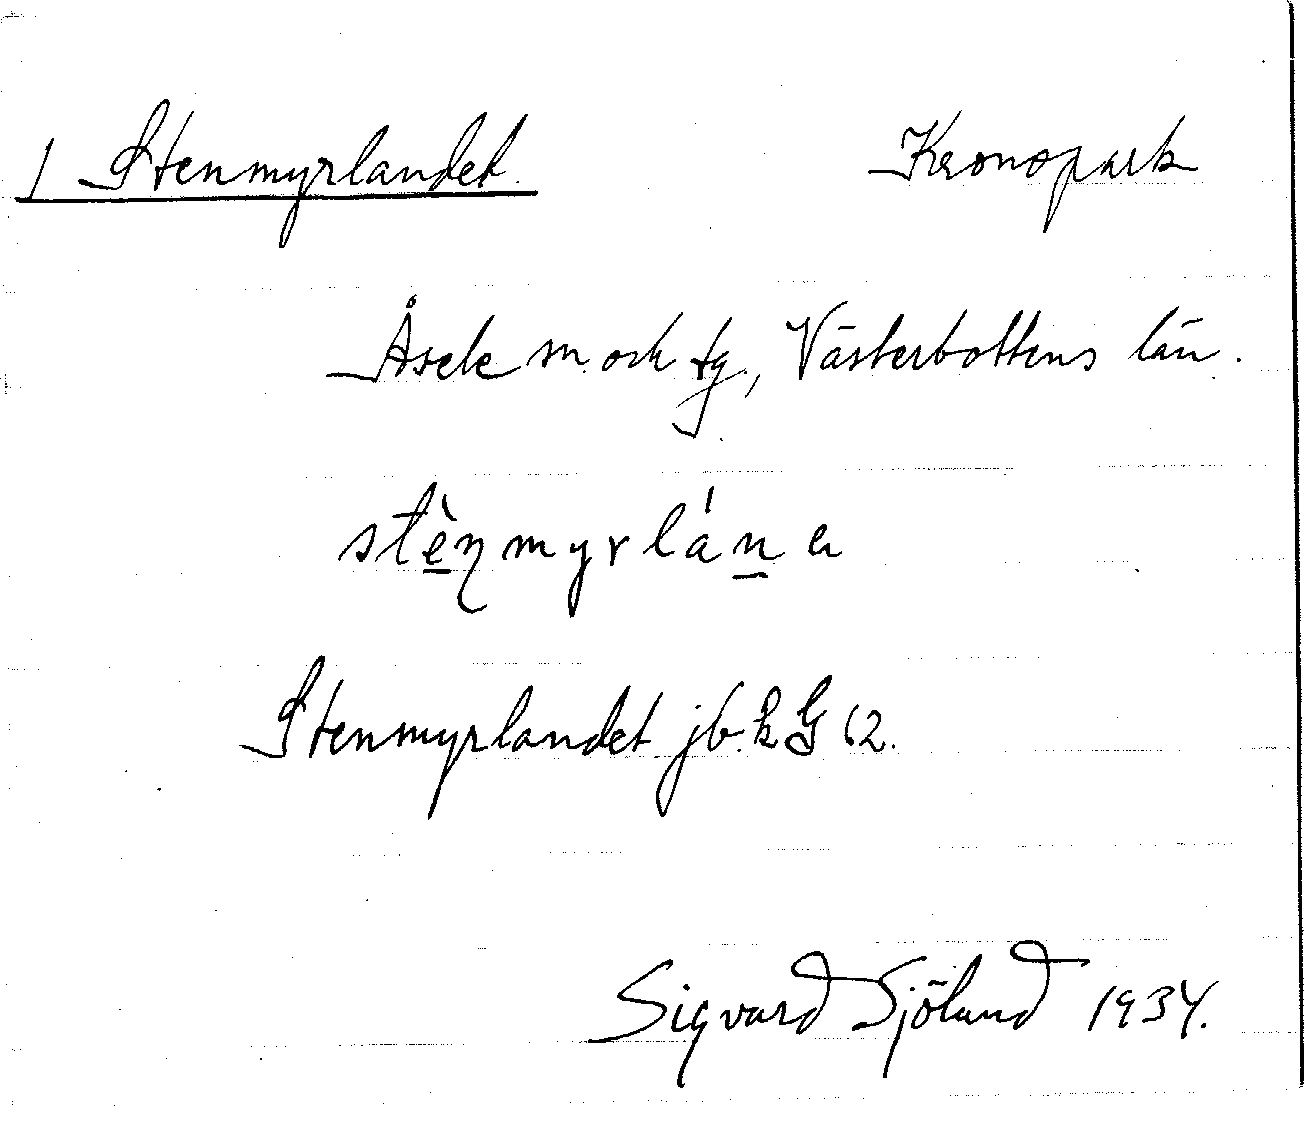 1 Stenmyrlandet. Kronopark
Åsele sn. och tg., Västerbottens län.
stèn̥myrlán a
Stenmyrlandet jb. k G 62.
Sigvard Sjölund 1934.